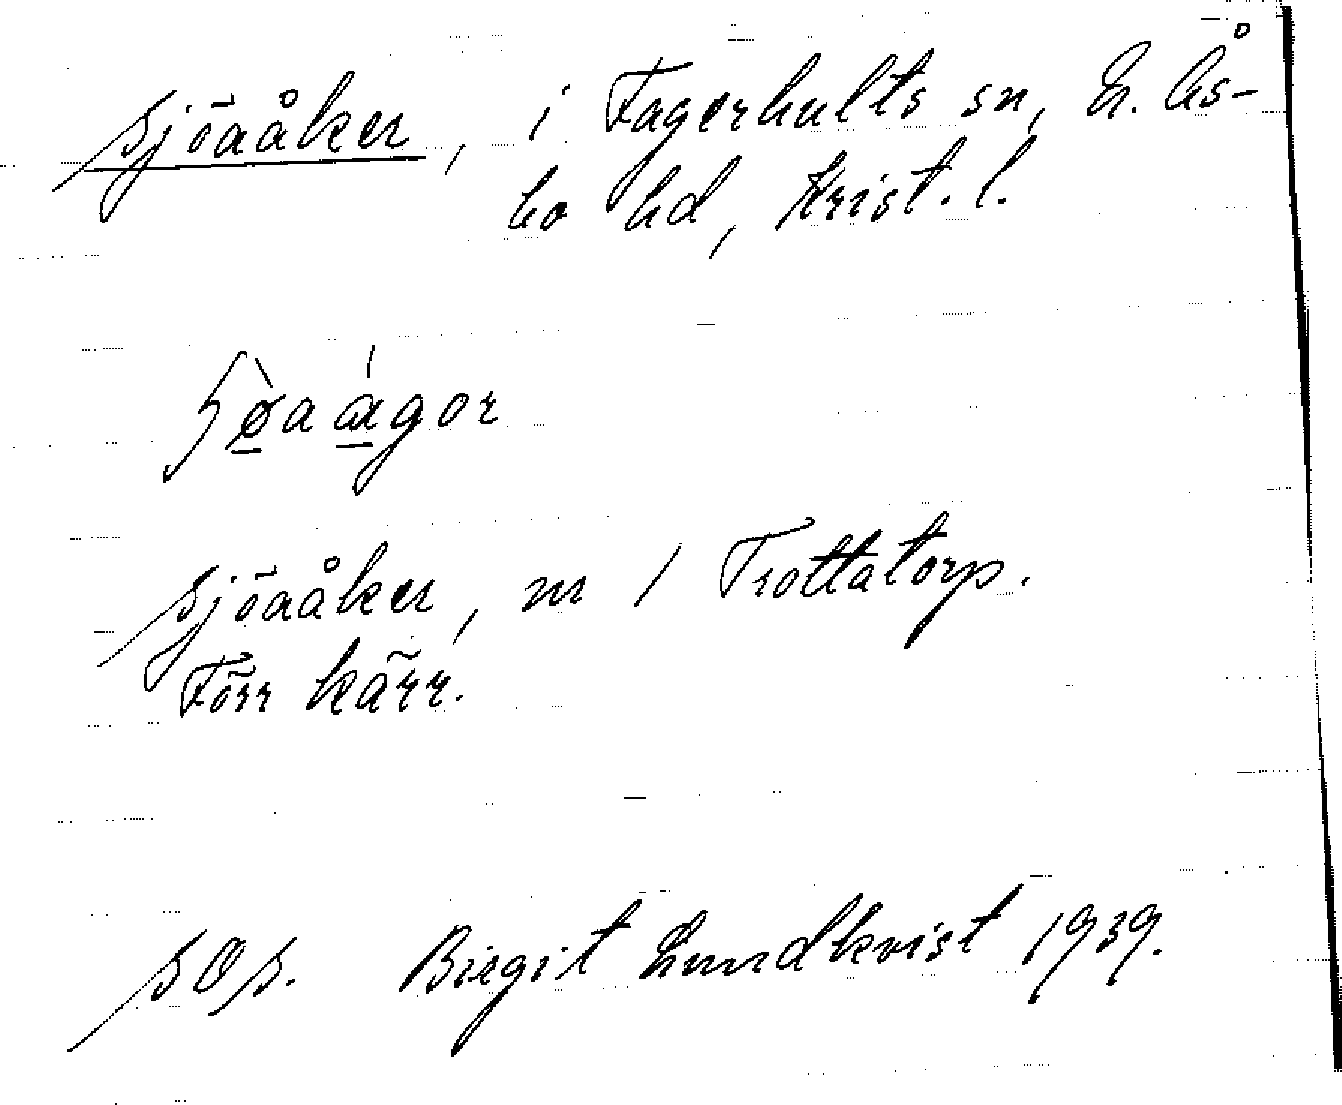 Sjöaåker, i Fagerhults sn, N. Ås-
bo hd, Krist. l.
ʃø̀aágor
Sjöaåker, nr 1 Trottatorp.
Förr kärr.
SOS. Birgit Lundkvist 1939.